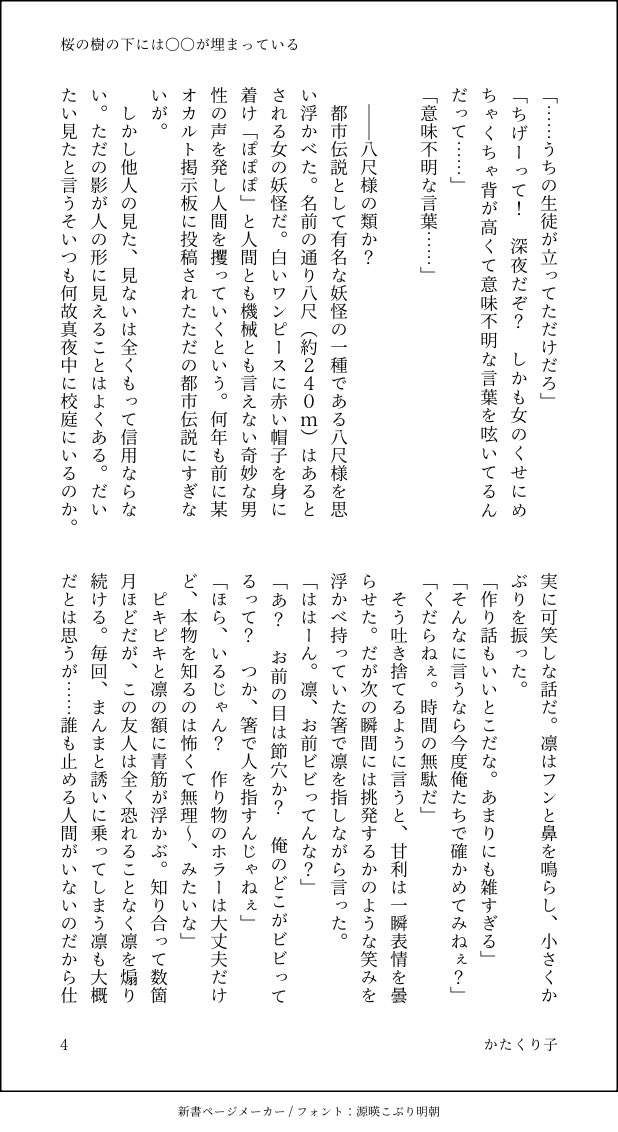 桜の樹の下には〇〇が埋まっている
「……うちの生徒が立ってただけだろ」
「ちげーって！　深夜だぞ？　しかも女のくせにめ
ちゃくちゃ背が高くて意味不明な言葉を呟いてるん
だって……」
「意味不明な言葉……」
――八尺様の類か？
　都市伝説として有名な妖怪の一種である八尺様を思
い浮かべた。名前の通り八尺（約２４０ｍ）はあると
される女の妖怪だ。白いワンピースに赤い帽子を身に
着け「ぽぽぽ」と人間とも機械とも言えない奇妙な男
性の声を発し人間を攫っていくという。何年も前に某
オカルト掲示板に投稿されたただの都市伝説にすぎな
いが。
　しかし他人の見た、見ないは全くもって信用ならな
い。ただの影が人の形に見えることはよくある。だい
たい見たと言うそいつも何故真夜中に校庭にいるのか。
実に可笑しな話だ。凛はフンと鼻を鳴らし、小さくか
ぶりを振った。
「作り話もいいとこだな。あまりにも雑すぎる」
「そんなに言うなら今度俺たちで確かめてみねぇ？」
「くだらねぇ。時間の無駄だ」
　そう吐き捨てるように言うと、甘利は一瞬表情を曇
らせた。だが次の瞬間には挑発するかのような笑みを
浮かべ持っていた箸で凛を指しながら言った。
「ははーん。凛、お前ビビってんな？」
「あ？　お前の目は節穴か？　俺のどこがビビって
るって？　つか、箸で人を指すんじゃねぇ」
「ほら、いるじゃん？　作り物のホラーは大丈夫だけ
ど、本物を知るのは怖くて無理〜、みたいな」
　ピキピキと凛の額に青筋が浮かぶ。知り合って数箇
月ほどだが、この友人は全く恐れることなく凛を煽り
続ける。毎回、まんまと誘いに乗ってしまう凛も大概
だとは思うが……誰も止める人間がいないのだから仕
4
かたくり子
新書ページメーカー / フォント：源暎こぶり明朝